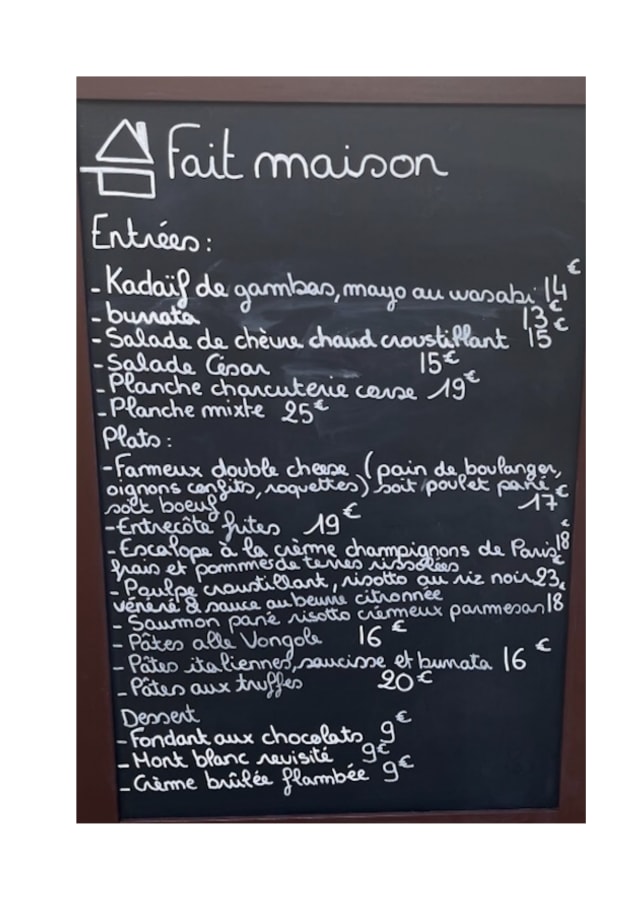 Fait maison
Entrées :
- Kadaïf de gambas, mayo au wasabi 14€
- burrata 13€
- Salade de chèvre chaud croustillant 15€
- Salade César 15€
- Planche charcuterie corse 19€
- Planche mixte 25€
Plats :
- Fameux double cheese (pain de boulanger,
oignons confits, roquettes) soit poulet pané
soit boeuf 17€
- Entrecôte frites 19€
- Escalope à la crème champignons de Paris 18€
frais et pommes de terres rissolées
- Poulpe croustillant, risotto au riz noir 23€
vénéré & sauce au beurre citronnée
- Saumon pané risotto crémeux parmesan 18
- Pâtes alle Vongole 16€
- Pâtes italiennes, saucisse et burrata 16€
- Pâtes aux truffes 20€
Dessert
- Fondant aux chocolats 9€
- Mont blanc revisité 9€
- Crème brûlée flambée 9€